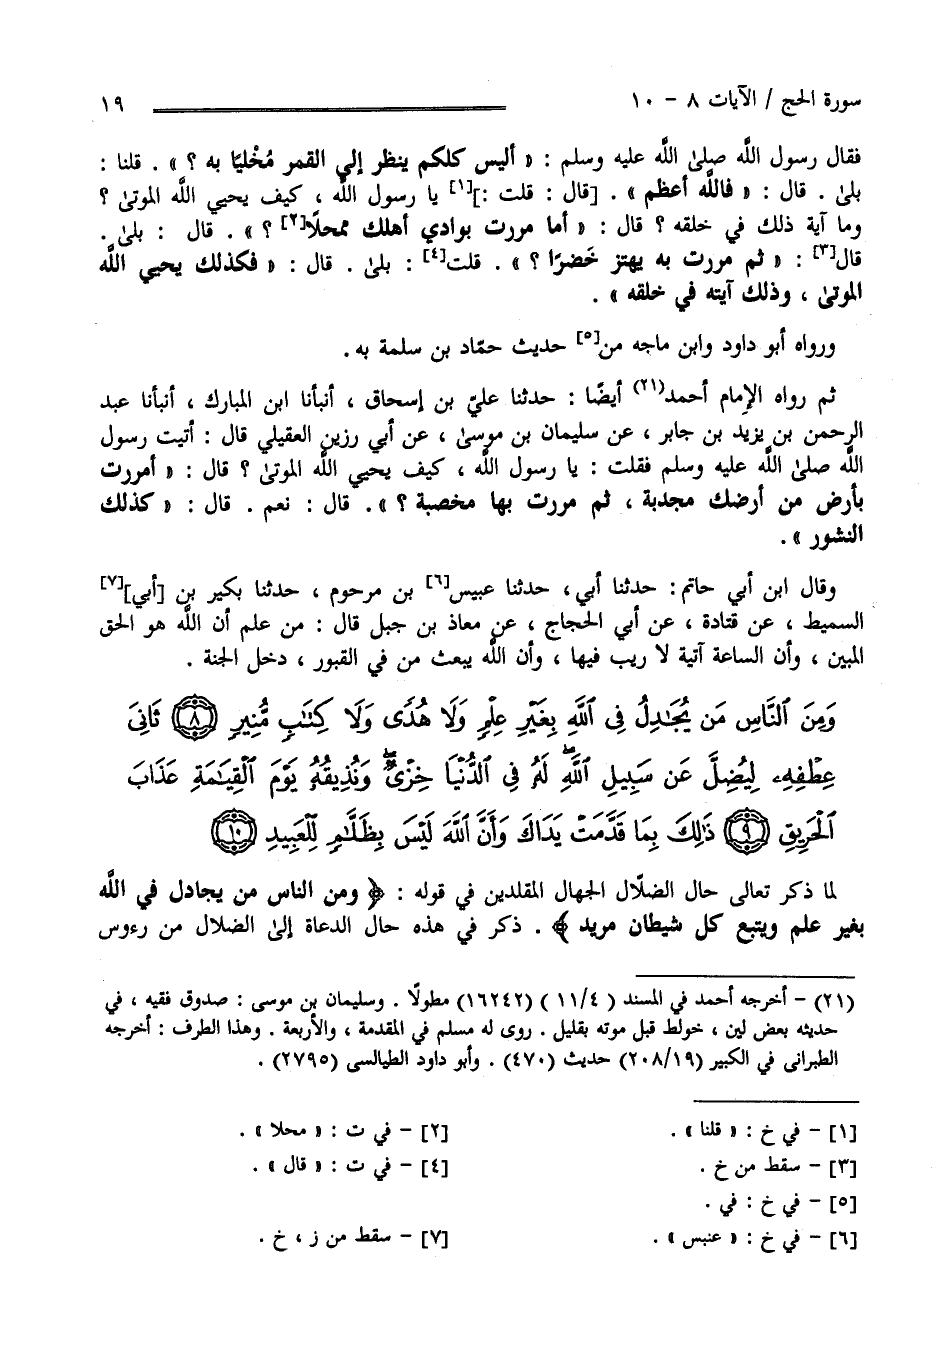 سورة الحج / الآيات ٨ - ١٠ ١٩
فقال رسول الله صلى الله عليه وسلم : « أليس كلكم ينظر إلى القمر مُخْليًا به ؟ » . قلنا :
بلى . قال : « فالله أعظم » . [قال : قلت :][١] يا رسول الله ، كيف يحيي الله الموتى ؟
وما آية ذلك في خلقه ؟ قال : « أما مررت بوادي أهلك ممحلًا[٢] ؟ » . قال : بلى .
قال[٣] : « ثم مررت به يهتز خَضرًا ؟ » . قلت[٤] : بلى . قال : « فكذلك يحيي الله
الموتى ، وذلك آيته في خلقه » .
ورواه أبو داود وابن ماجه من[٥] حديث حمّاد بن سلمة به .
ثم رواه الإمام أحمد(٢١) أيضًا : حدثنا عليّ بن إسحاق ، أنبأنا ابن المبارك ، أنبأنا عبد
الرحمن بن يزيد بن جابر ، عن سليمان بن موسى ، عن أبي رزين العقيلي قال : أتيت رسول
الله صلى الله عليه وسلم فقلت : يا رسول الله ، كيف يحيي الله الموتى ؟ قال : « أمررت
بأرض من أرضك مجدبة ، ثم مررت بها مخصبة ؟ » . قال : نعم . قال : « كذلك
النشور » .
وقال ابن أبي حاتم : حدثنا أبي ، حدثنا عبيس[٦] بن مرحوم ، حدثنا بكير بن [أبي][٧]
السميط ، عن قتادة ، عن أبي الحجاج ، عن معاذ بن جبل قال : من علم أن الله هو الحق
المبين ، وأن الساعة آتية لا ريب فيها ، وأن الله يبعث من في القبور ، دخل الجنة .
وَمِنَ ٱلنَّاسِ مَن يُجَـٰدِلُ فِى ٱللَّهِ بِغَيْرِ عِلْمٍ وَلَا هُدًى وَلَا كِتَـٰبٍ مُّنِيرٍ ٨ ثَانِىَ
عِطْفِهِۦ لِيُضِلَّ عَن سَبِيلِ ٱللَّهِ ۖ لَهُۥ فِى ٱلدُّنْيَا خِزْىٌ ۖ وَنُذِيقُهُۥ يَوْمَ ٱلْقِيَـٰمَةِ عَذَابَ
ٱلْحَرِيقِ ٩ ذَٰلِكَ بِمَا قَدَّمَتْ يَدَاكَ وَأَنَّ ٱللَّهَ لَيْسَ بِظَلَّـٰمٍ لِّلْعَبِيدِ ١٠
لما ذكر تعالى حال الضلّال الجهال المقلدين في قوله : ﴿ ومن الناس من يجادل في الله
بغير علم ويتبع كل شيطان مريد ﴾ . ذكر في هذه حال الدعاة إلى الضلال من رءوس
(٢١) - أخرجه أحمد في المسند ( ١١/٤ ) (١٦٢٤٢) مطولًا . وسليمان بن موسى : صدوق فقيه ، في
حديثه بعض لين ، خولط قبل موته بقليل . روى له مسلم في المقدمة ، والأربعة . وهذا الطرف : أخرجه
الطبرانى في الكبير (٢٠٨/١٩) حديث (٤٧٠) . وأبو داود الطيالسى (٢٧٩٥) .
[١] - في خ : « قلنا » . [٢] - في ت : « محلا » .
[٣] - سقط من خ . [٤] - في ت : « قال » .
[٥] - في خ : في .
[٦] - في خ : « عنبس » . [٧] - سقط من ز ، خ .